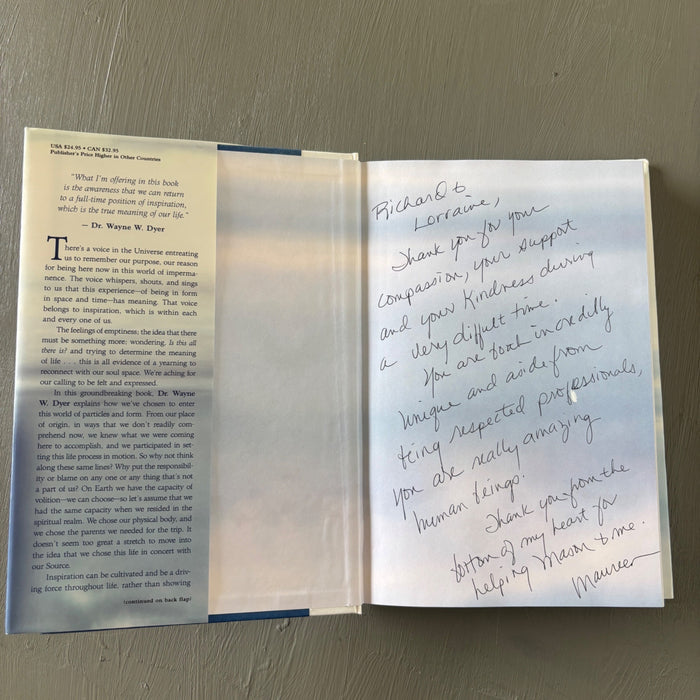 USA $24.95 • CAN $32.95
Publisher's Price Higher in Other Countries
"What I'm offering in this book
is the awareness that we can return
to a full-time position of inspiration,
which is the true meaning of our life."
— Dr. Wayne W. Dyer
There's a voice in the Universe entreating
us to remember our purpose, our reason
for being here now in this world of imperma-
nence. The voice whispers, shouts, and sings
to us that this experience—of being in form
in space and time—has meaning. That voice
belongs to inspiration, which is within each
and every one of us.
The feelings of emptiness; the idea that there
must be something more; wondering, Is this all
there is? and trying to determine the meaning
of life . . . this is all evidence of a yearning to
reconnect with our soul space. We're aching for
our calling to be felt and expressed.
In this groundbreaking book, Dr. Wayne
W. Dyer explains how we've chosen to enter
this world of particles and form. From our place
of origin, in ways that we don't readily com-
prehend now, we knew what we were coming
here to accomplish, and we participated in set-
ting this life process in motion. So why not think
along these same lines? Why put the responsibil-
ity or blame on any one or any thing that's not
a part of us? On Earth we have the capacity of
volition—we can choose—so let's assume that we
had the same capacity when we resided in the
spiritual realm. We chose our physical body, and
we chose the parents we needed for the trip. It
doesn't seem too great a stretch to move into
the idea that we chose this life in concert with
our Source.
Inspiration can be cultivated and be a driv-
ing force throughout life, rather than showing
(continued on back flap)
Richard &
Lorraine,
Thank you for your
compassion, your support
and your kindness during
a very diffult time.
You are both incredilly
unique and aside from
being respected professionals,
you are really amazing
human beings.
Thank you from the
bottom of my heart for
helping Mason & me.
Maureen